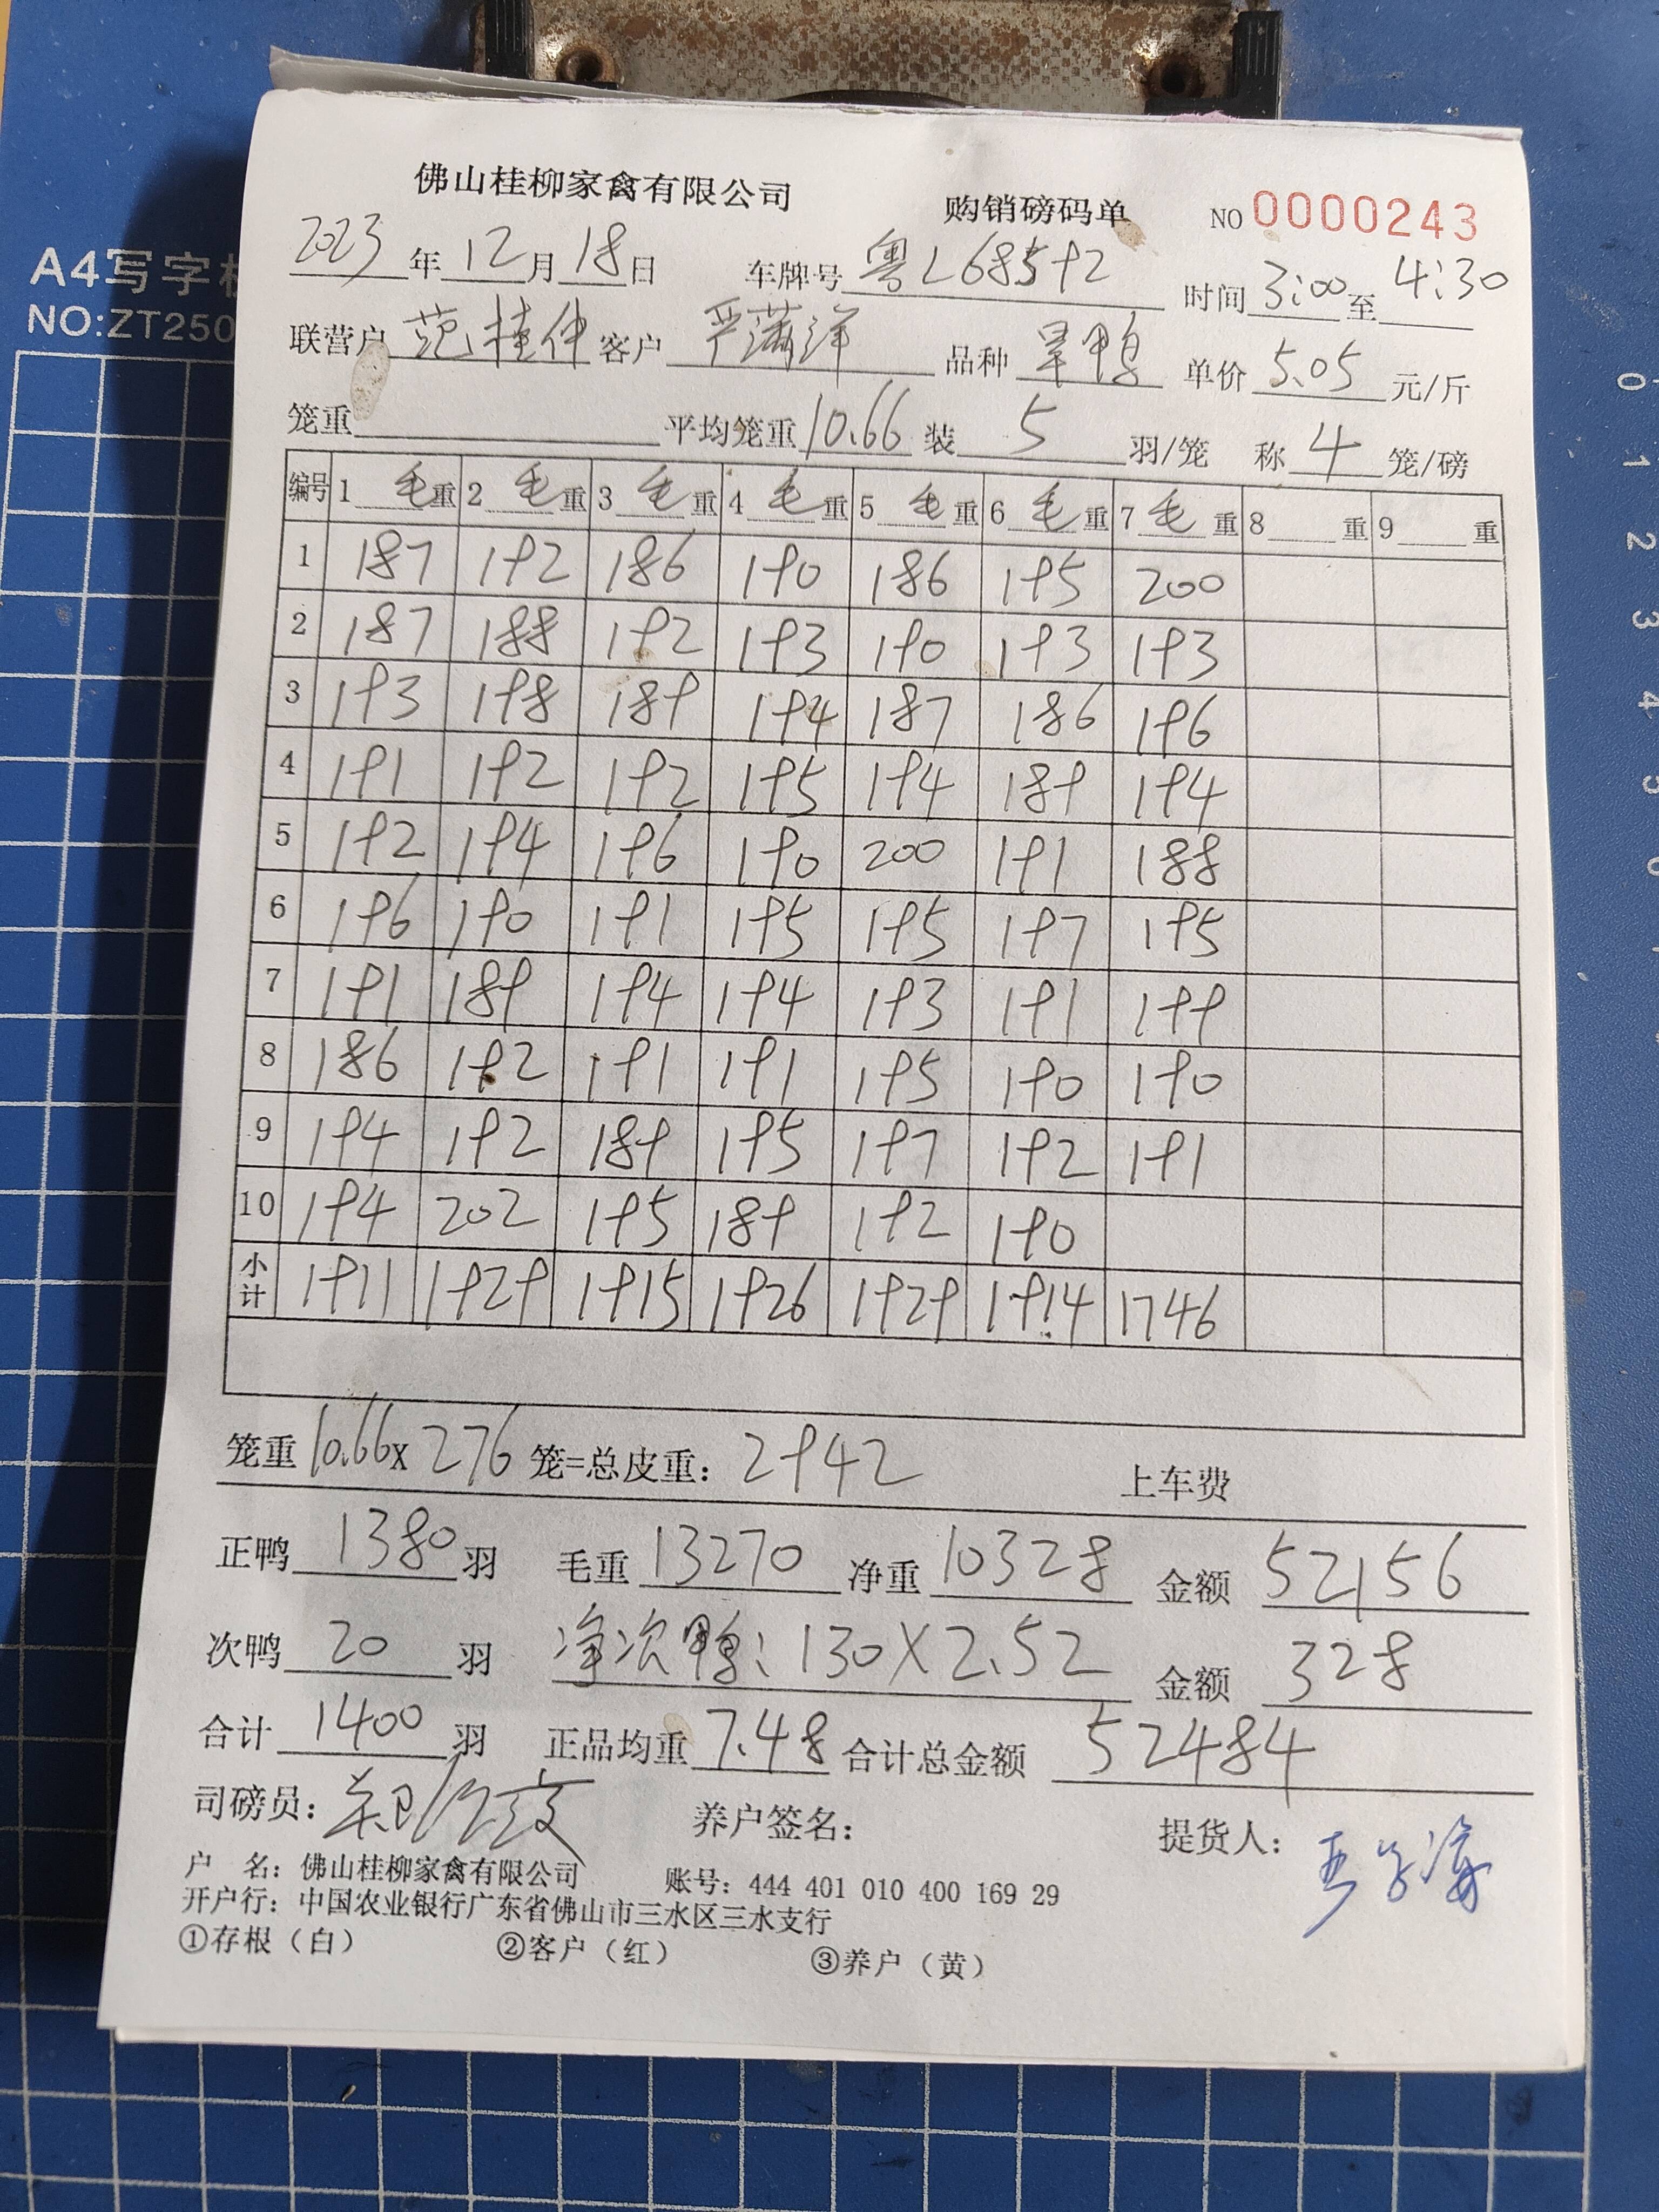 佛山桂柳家禽有限公司 购销磅码单 NO 0000243
2023年12月18日 车牌号 粤L68592 时间 3:00至4:30
联营户 范桂伸 客户 严满洋 品种 旱鸭 单价 5.05 元/斤
笼重 平均笼重 10.66 装 5 羽/笼 称 4 笼/磅
编号 1 毛重 2 毛重 3 毛重 4 毛重 5 毛重 6 毛重 7 毛重 8 重 9 重
1 187 192 186 190 186 195 200
2 187 188 192 193 190 193 193
3 193 198 189 194 187 186 196
4 191 192 192 195 194 189 194
5 192 194 196 190 200 191 188
6 196 190 191 195 195 197 195
7 191 189 194 194 193 191 199
8 186 192 191 191 195 190 190
9 194 192 189 195 197 192 191
10 194 202 195 189 192 190
小计 1911 1929 1915 1926 1929 1914 1746
笼重 10.66x 276 笼=总皮重: 2942 上车费
正鸭 1380 羽 毛重 13270 净重 10328 金额 52156
次鸭 20 羽 净次鸭: 130X2.52 金额 328
合计 1400 羽 正品均重 7.48 合计总金额 52484
司磅员: 养户签名: 提货人:
户 名: 佛山桂柳家禽有限公司 账号: 444 401 010 400 169 29
开户行: 中国农业银行广东省佛山市三水区三水支行
①存根(白) ②客户(红) ③养户(黄)
A4写字板
NO:ZT250
0
1
2
3
4
5